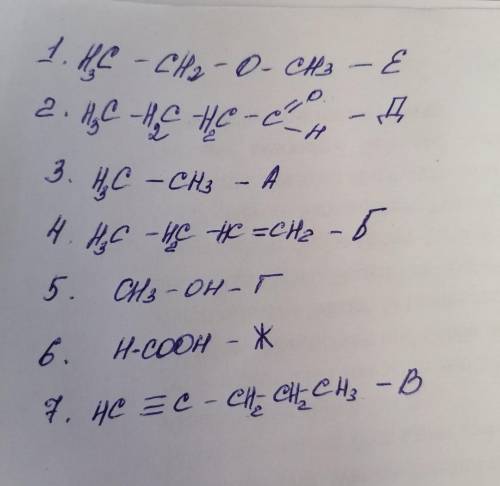 1. H₃C - CH₂ - O - CH₃ - Е
2. H₃C - H₂C - H₂C - C =O - H - Д
3. H₃C - CH₃ - А
4. H₃C - H₂C - HC = CH₂ - Б
5. CH₃ - OH - Г
6. H-COOH - Ж
7. HC ≡ C - CH₂-CH₂-CH₃ - В